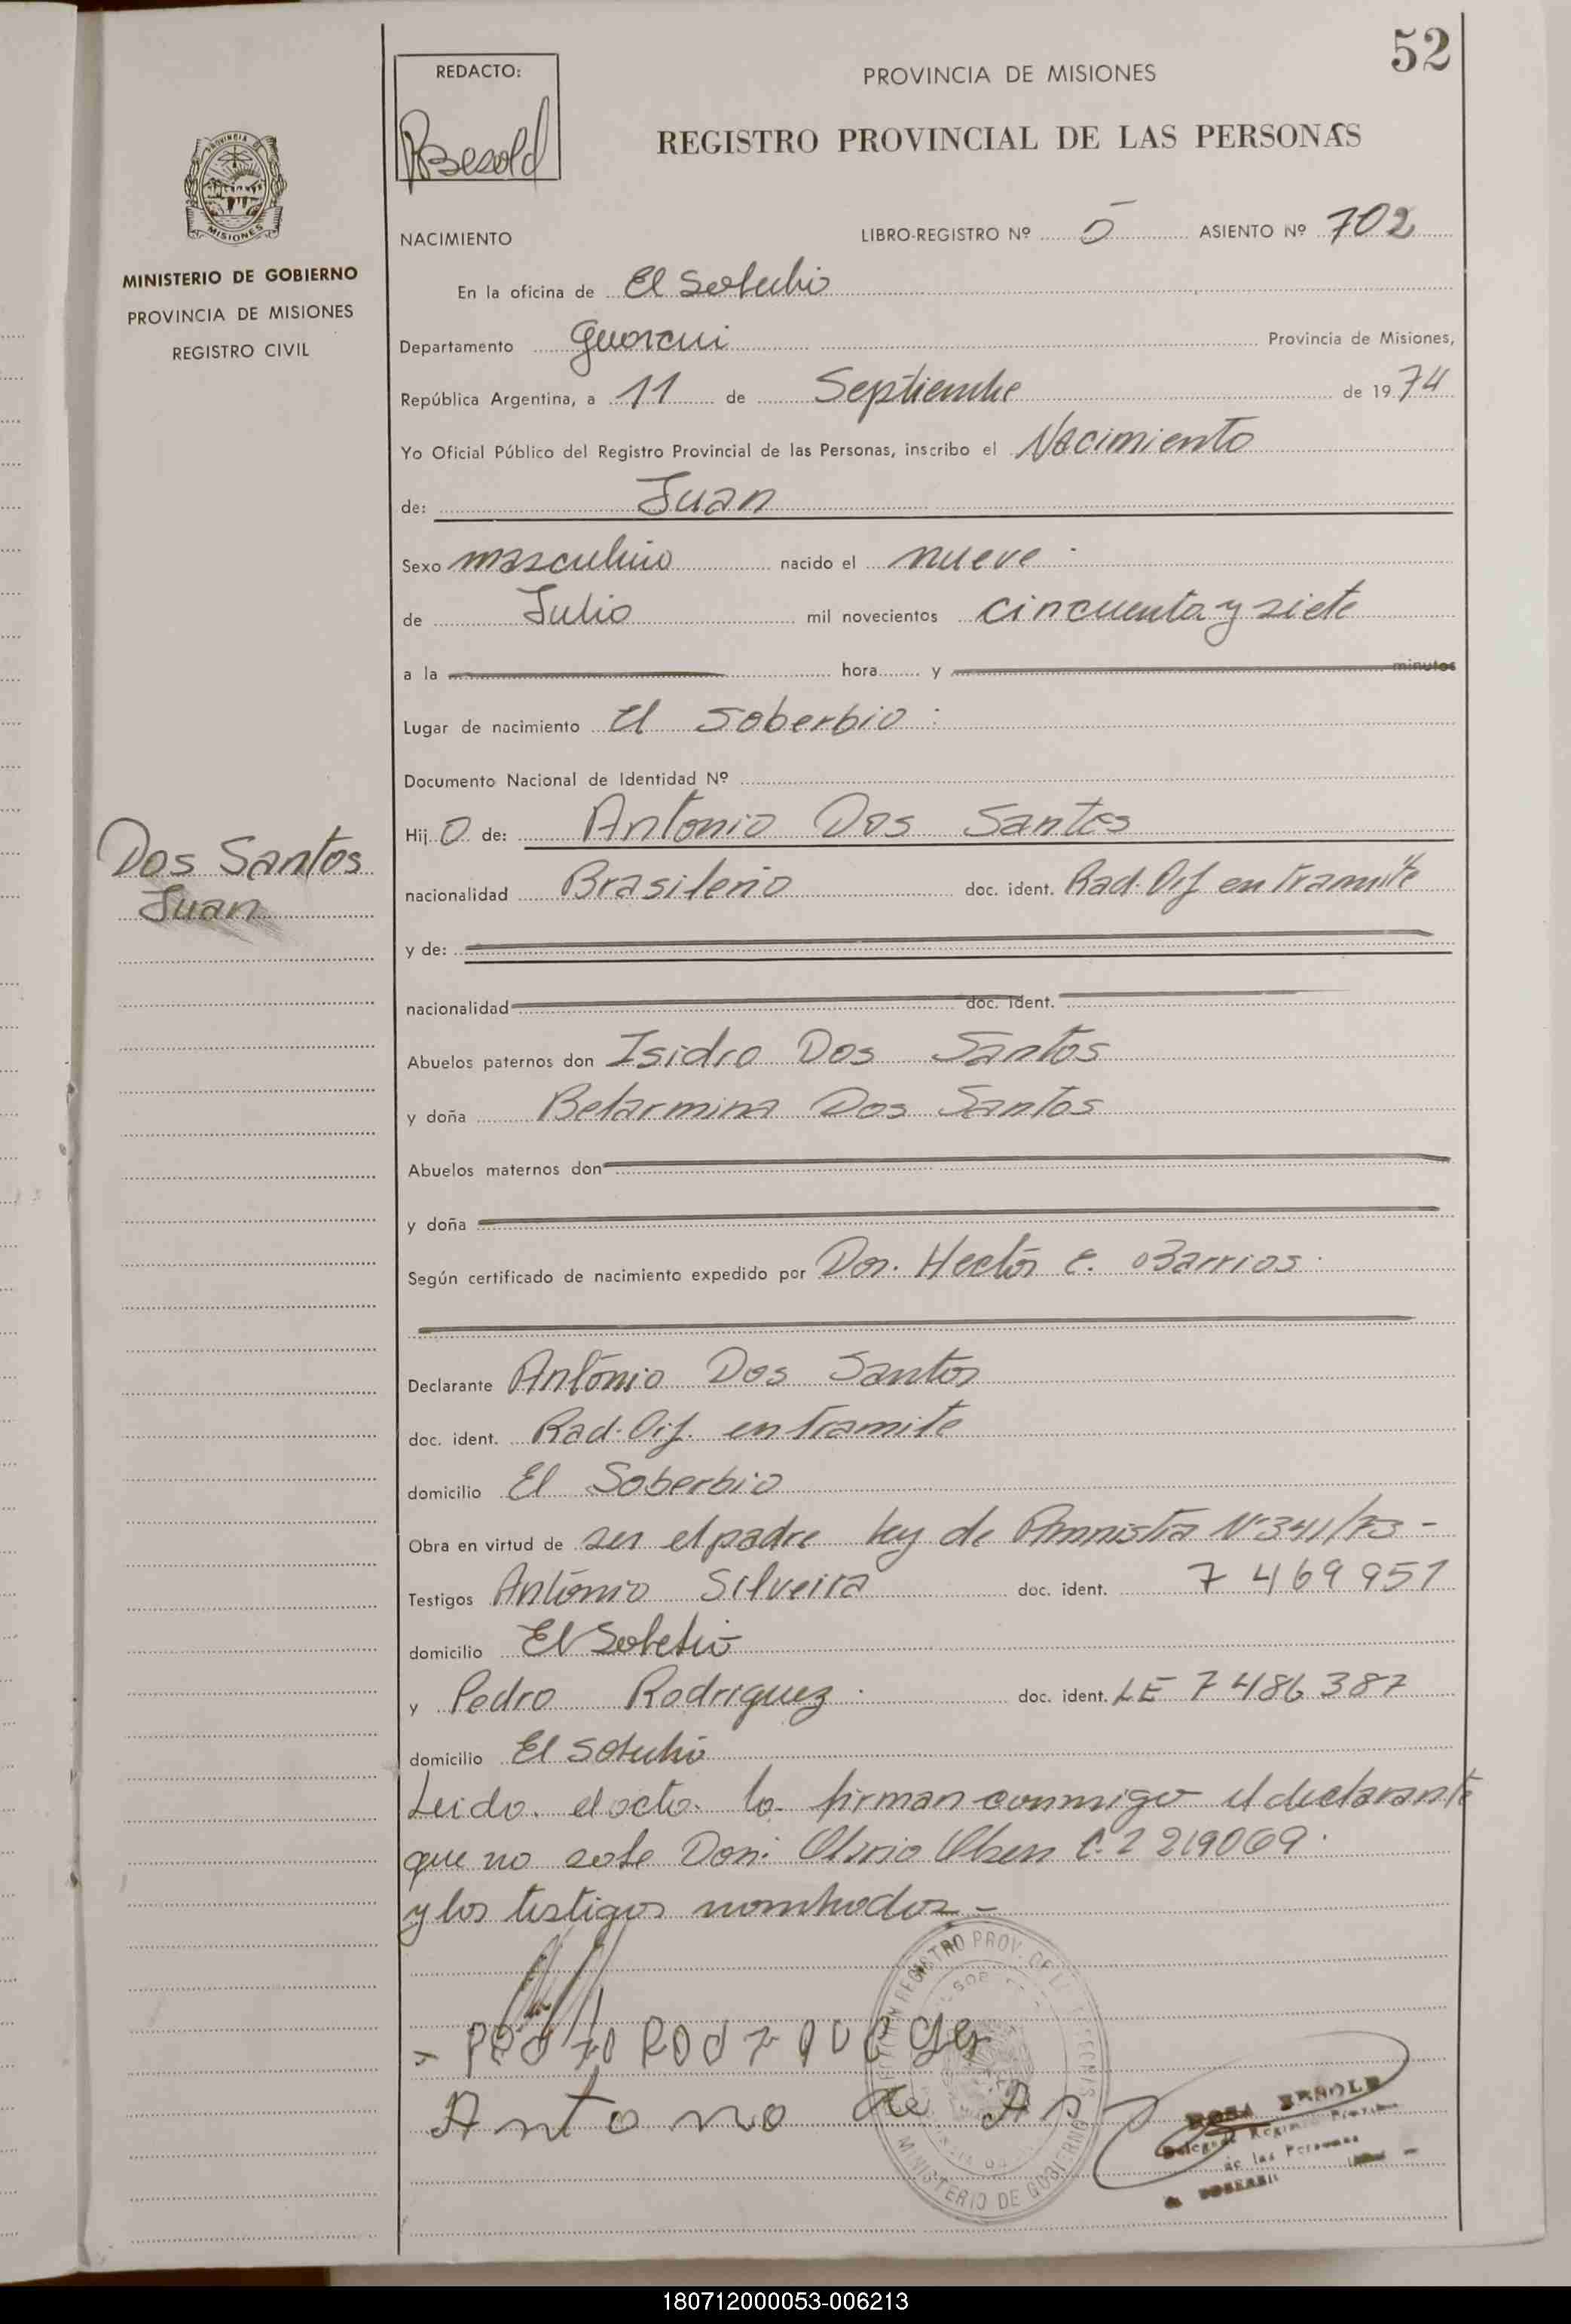 52
REDACTO:
Besold
PROVINCIA DE MISIONES
REGISTRO PROVINCIAL DE LAS PERSONAS
MISIONES
MINISTERIO DE GOBIERNO
PROVINCIA DE MISIONES
REGISTRO CIVIL
NACIMIENTO LIBRO-REGISTRO Nº 5 ASIENTO Nº 702
En la oficina de El Soberbio
Departamento Guarani Provincia de Misiones,
República Argentina, a 11 de Septiembre de 1974
Yo Oficial Público del Registro Provincial de las Personas, inscribo el Nacimiento
de: Juan
Sexo masculino nacido el nueve
de Julio mil novecientos cincuenta y siete
a la hora y minutos
Lugar de nacimiento El Soberbio
Documento Nacional de Identidad Nº
Dos Santos
Juan
Hijo de: Antonio Dos Santos
nacionalidad Brasileño doc. ident. Rad. Dif en tramite
y de:
nacionalidad doc. ident.
Abuelos paternos don Isidro Dos Santos
y doña Belarmina Dos Santos
Abuelos maternos don
y doña
Según certificado de nacimiento expedido por Dor. Hector E. Barrios
Declarante Antonio Dos Santos
doc. ident. Rad. Dif. en tramite
domicilio El Soberbio
Obra en virtud de ser el padre Ley de Amnistia Nº 341/73 -
Testigos Antonio Silveira doc. ident. 7 469 951
domicilio El Soberbio
y Pedro Rodriguez doc. ident. LE 7 486 387
domicilio El Soberbio
Leido el acto lo firman conmigo el declarante
que no sabe Don: Olsen C.I 219069
y los testigos nombrados -
REGISTRO PROV. DE LAS PERSONAS
MINISTERIO DE GOBIERNO
Antonio de
ROSA BESOLD
de las Personas
180712000053-006213